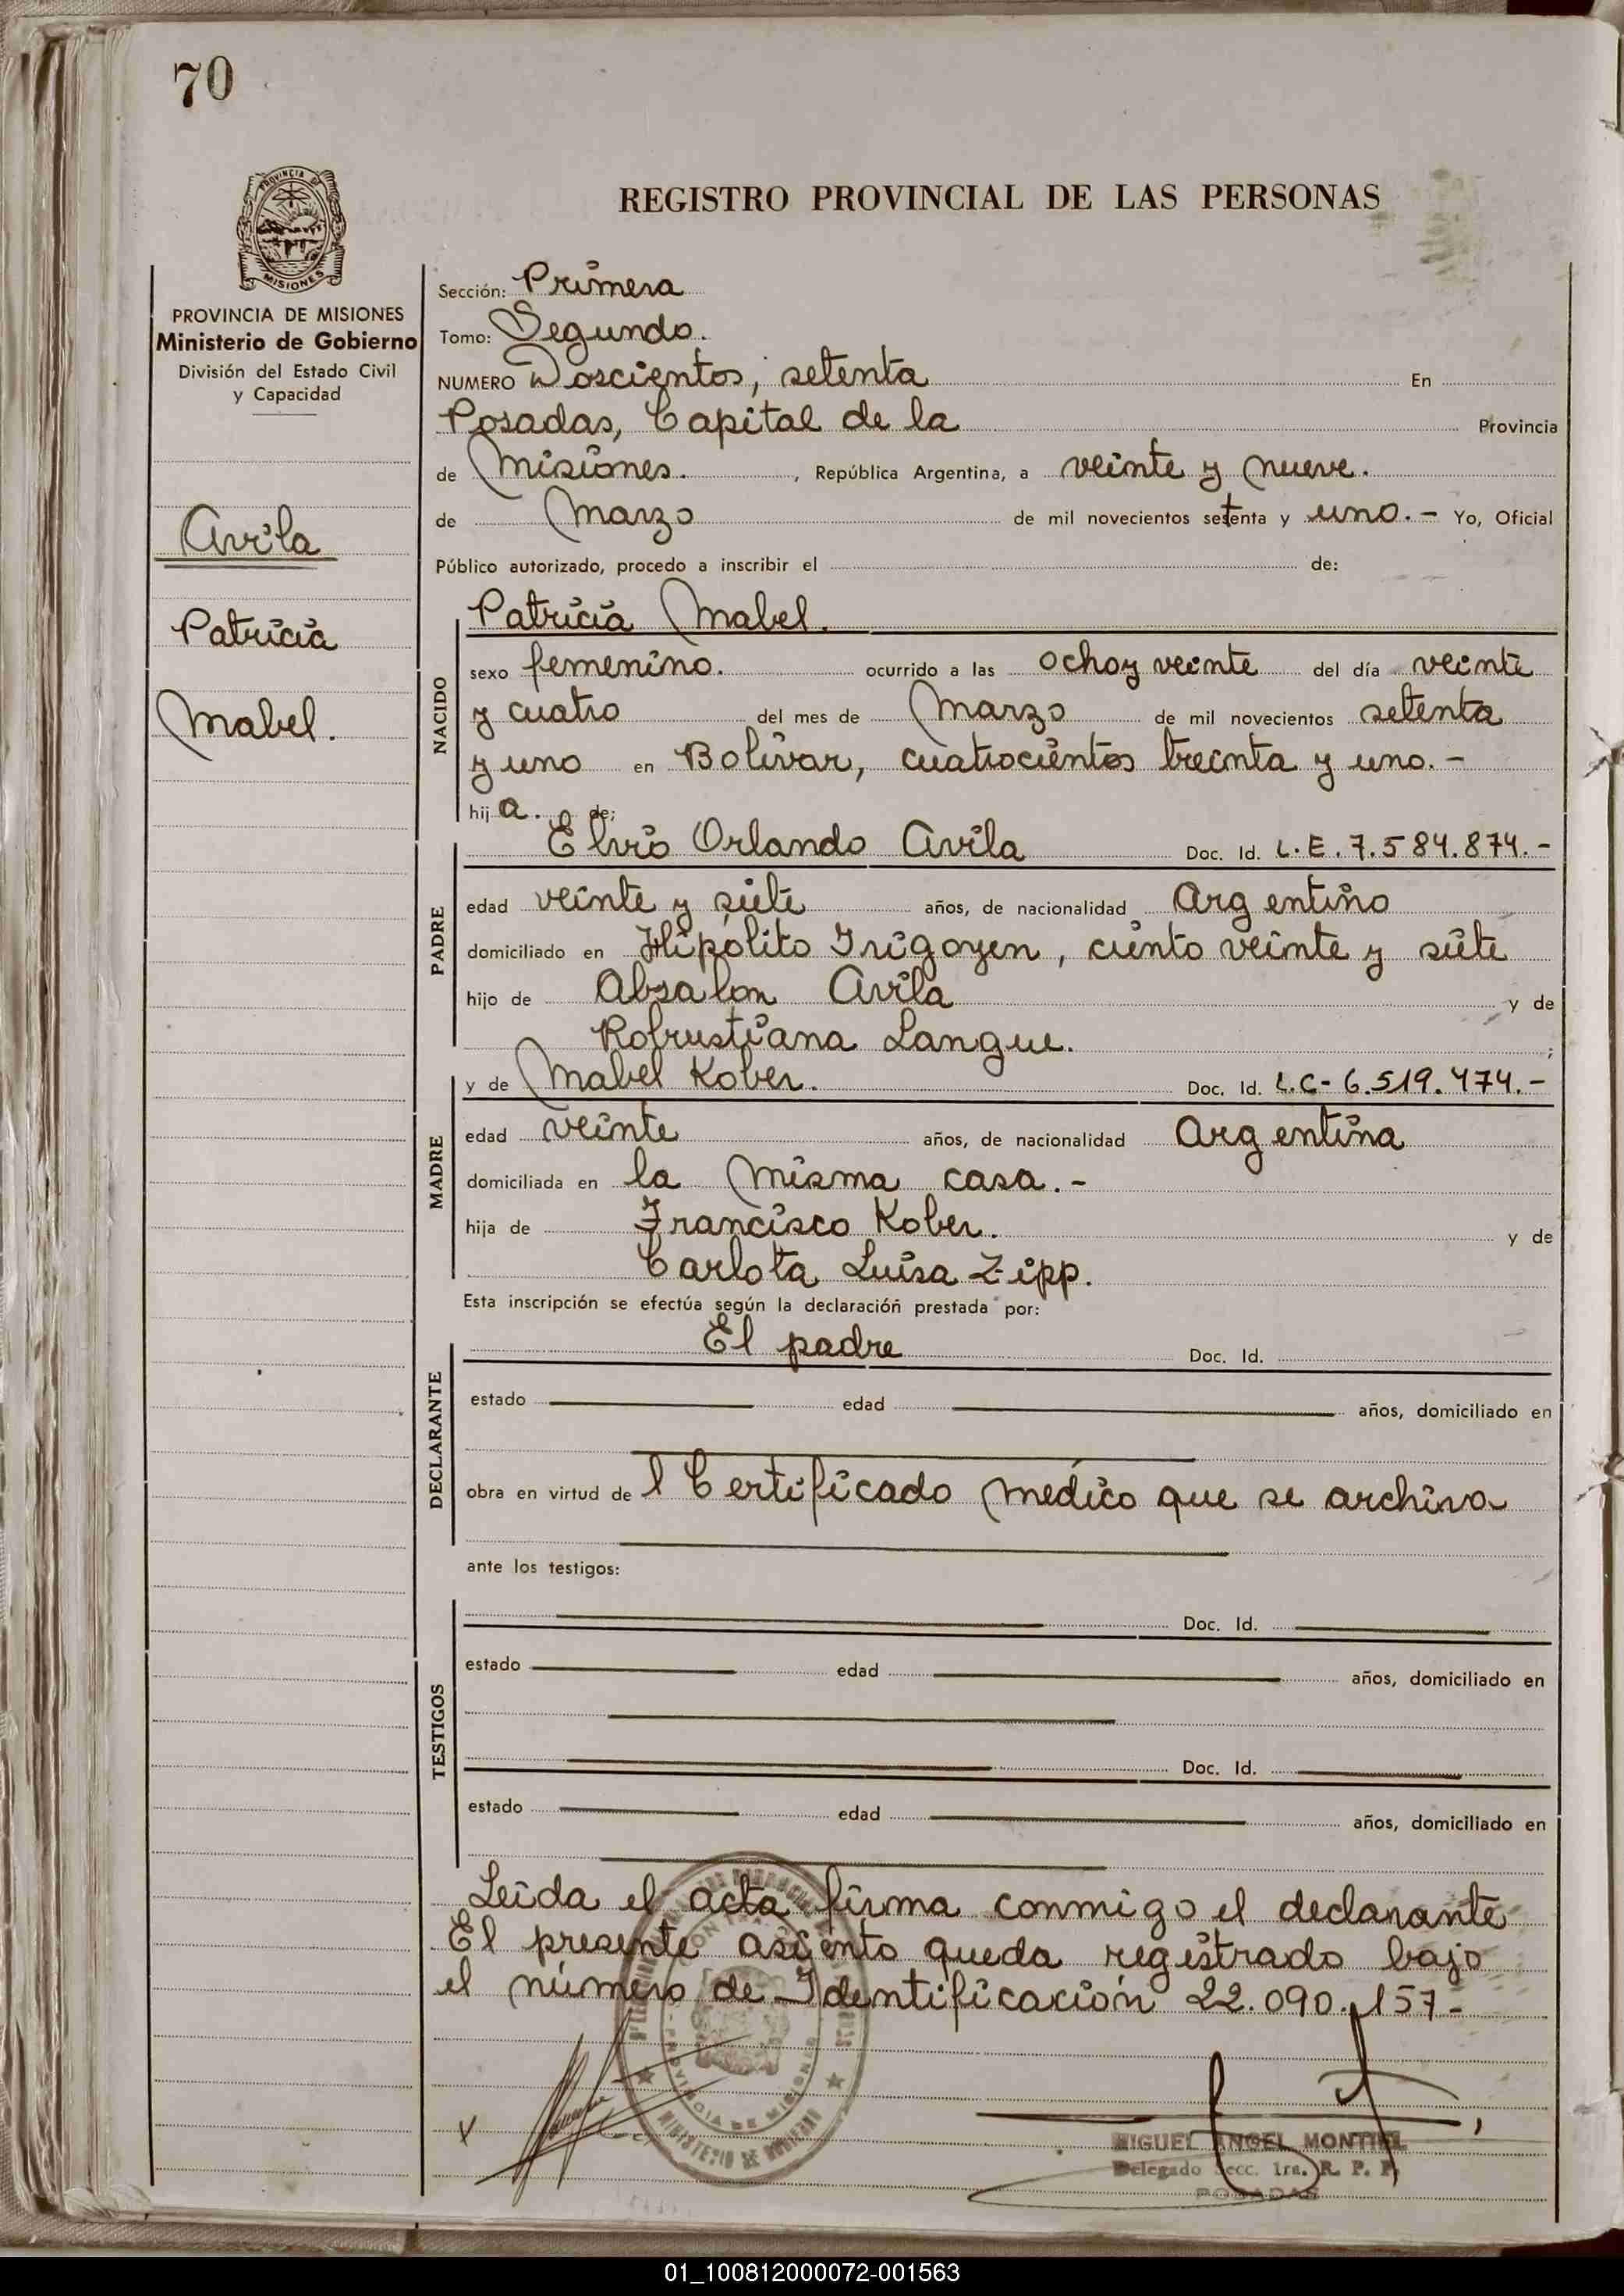 70
PROVINCIA DE
MISIONES
REGISTRO PROVINCIAL DE LAS PERSONAS
PROVINCIA DE MISIONES
Ministerio de Gobierno
División del Estado Civil
y Capacidad
Avila
Patricia
Mabel.
Sección: Primera
Tomo: Segundo.
NUMERO Doscientos, setenta En
Posadas, Capital de la Provincia
de Misiones. , República Argentina, a veinte y nueve.
de Marzo de mil novecientos setenta y uno.- Yo, Oficial
Público autorizado, procedo a inscribir el de:
NACIDO
Patricia Mabel.
sexo femenino. ocurrido a las ocho y veinte del día veinte
y cuatro del mes de Marzo de mil novecientos setenta
y uno en Bolívar, cuatrocientos treinta y uno.-
hij a. de:
PADRE
Elvio Orlando Avila Doc. Id. L.E. 7.584.874.-
edad veinte y siete años, de nacionalidad Argentino
domiciliado en Hipólito Irigoyen, ciento veinte y siete
hijo de Absalon Avila y de
Robustiana Langue. ;
MADRE
y de Mabel Kober. Doc. Id. L.C- 6.519.474.-
edad veinte años, de nacionalidad Argentina
domiciliada en la misma casa.-
hija de Francisco Kober. y de
Carlota Luisa Zipp.
Esta inscripción se efectúa según la declaración prestada por:
DECLARANTE
El padre Doc. Id.
estado edad años, domiciliado en
obra en virtud de l Certificado medico que se archiva
ante los testigos:
TESTIGOS
Doc. Id.
estado edad años, domiciliado en
Doc. Id.
estado edad años, domiciliado en
Leida el acta firma conmigo el declarante
El presente asiento queda registrado bajo
el número de Identificación 22.090.157-
PROVINCIA DE MISIONES
MINISTERIO DE GOBIERNO
X
MIGUEL ANGEL MONTIEL
Delegado Secc. 1ra. R. P. P.
POSADAS
01_100812000072-001563